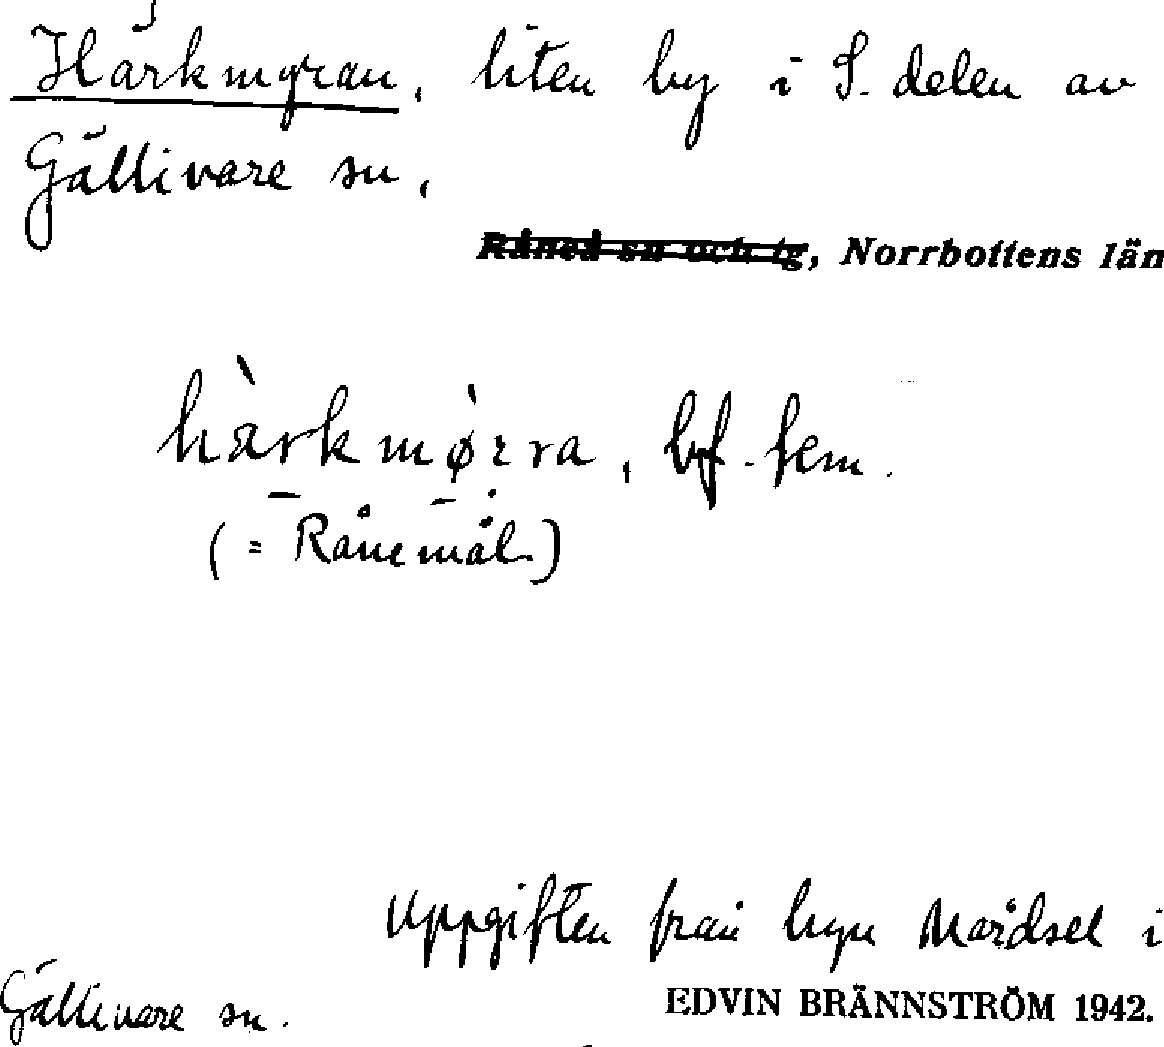 Härkmyran, liten by i S. delen av
Gällivare sn,
Råneå sn och tg, Norrbottens län
hàrkmø̀rra, bf. fem.
(= Rånemål)
Uppgiften från byn Mårdsel i
Gällivare sn.
EDVIN BRÄNNSTRÖM 1942.